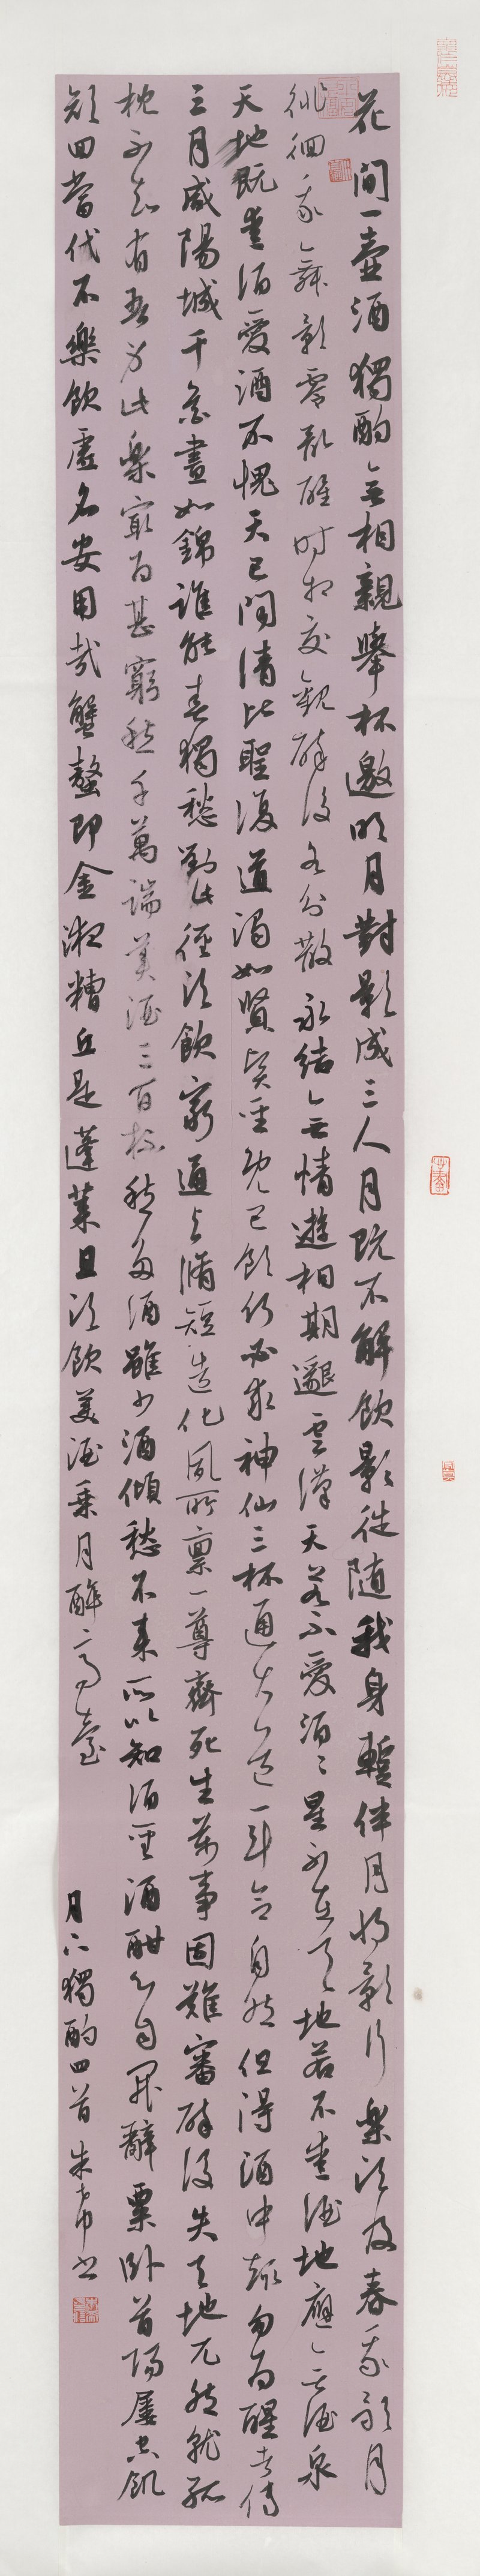 花間一壺酒獨酌無相親舉杯邀明月對影成三人月既不解飲影徒隨我身暫伴月將影行樂須及春我歌月
徘徊我舞影零亂醒時相交歡醉後各分散永結無情遊相期邈雲漢天若不愛酒酒星不在天地若不愛酒地應無酒泉
天地既愛酒愛酒不愧天已聞清比聖復道濁如賢賢聖既已飲何必求神仙三杯通大道一斗合自然但得酒中趣勿為醒者傳
三月咸陽城千花晝如錦誰能春獨愁對此徑須飲窮通與脩短造化夙所稟一尊齊死生萬事固難審醉後失天地兀然就孤
枕不知有吾身此樂最為甚窮愁千萬端美酒三百杯愁多酒雖少酒傾愁不來所以知酒聖酒酣心自開辭粟臥首陽屢空飢
顏回當代不樂飲虛名安用哉蟹螯即金液糟丘是蓬萊且須飲美酒乘月醉高臺
月下獨酌四首 朱帝书